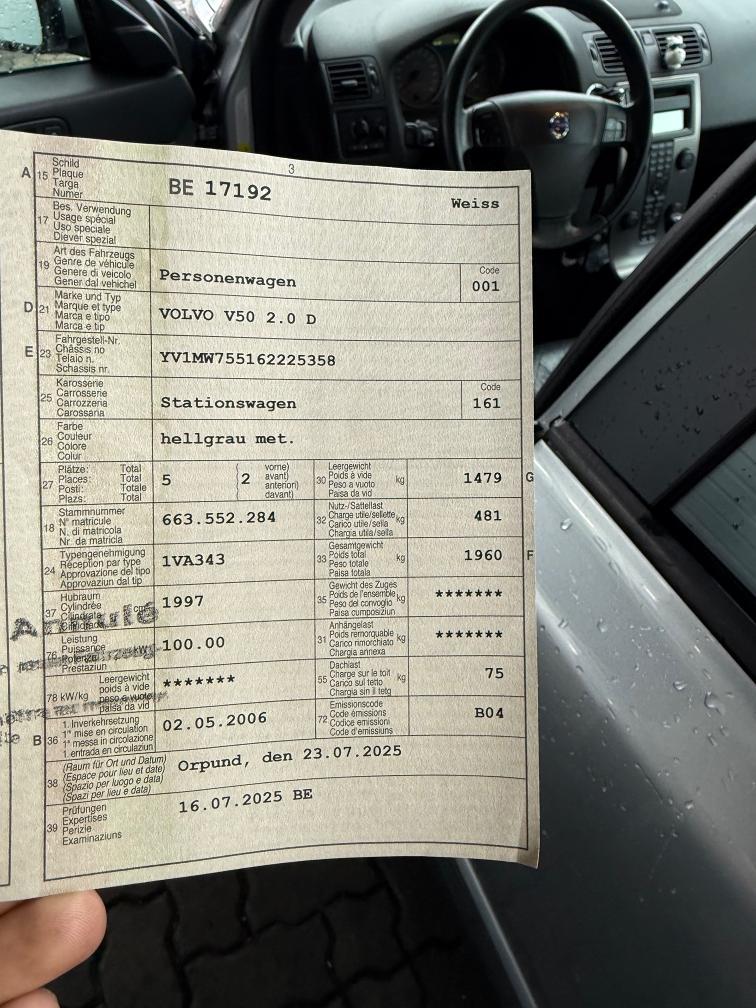 3
A 15 Schild
Plaque
Targa
Numer
BE 17192
Weiss
17 Bes. Verwendung
Usage spécial
Uso speciale
Diever spezial
19 Art des Fahrzeugs
Genre de véhicule
Genere di veicolo
Gener dal vehichel
Personenwagen
Code
001
D 21 Marke und Typ
Marque et type
Marca e tipo
Marca e tip
VOLVO V50 2.0 D
E 23 Fahrgestell-Nr.
Châssis no
Telaio n.
Schassis nr.
YV1MW755162225358
25 Karosserie
Carrosserie
Carrozzeria
Carossaria
Stationswagen
Code
161
26 Farbe
Couleur
Colore
Colur
hellgrau met.
27 Plätze: Total
Places: Total
Posti: Totale
Plazs: Total
5
2
vorne)
avant)
anteriori)
davant)
30 Leergewicht
Poids à vide
Peso a vuoto
Paisa da vid
kg
1479
G
18 Stammnummer
N° matricule
N. di matricola
Nr. da matricla
663.552.284
32 Nutz-/Sattellast
Charge utile/sellette
Carico utile/sella
Chargia utila/sella
kg
481
24 Typengenehmigung
Réception par type
Approvazione del tipo
Approvaziun dal tip
1VA343
33 Gesamtgewicht
Poids total
Peso totale
Paisa totala
kg
1960
F
37 Hubraum
Cylindrée
cm³
1997
35 Gewicht des Zuges
Poids de l'ensemble
Peso del convoglio
Paisa cumposiziun
kg
*******
Annulé
76 Leistung
Puissance
Potenza
Prestaziun
kW
100.00
31 Anhängelast
Poids remorquable
Carico rimorchiato
Chargia annexa
kg
*******
78 kW/kg
Leergewicht
poids à vide
peso a vuoto
paisa da vid
*******
55 Dachlast
Charge sur le toit
Carico sul tetto
Chargia sin il tetg
kg
75
B 36 1. Inverkehrsetzung
1re mise en circulation
1a messa in circolazione
1. entrada en circulaziun
02.05.2006
72 Emissionscode
Code émissions
Codice emissioni
Code d'emissiuns
B04
38 (Raum für Ort und Datum)
(Espace pour lieu et date)
(Spazio per luogo e data)
(Spazi per lieu e data)
Orpund, den 23.07.2025
39 Prüfungen
Expertises
Perizie
Examinaziuns
16.07.2025 BE